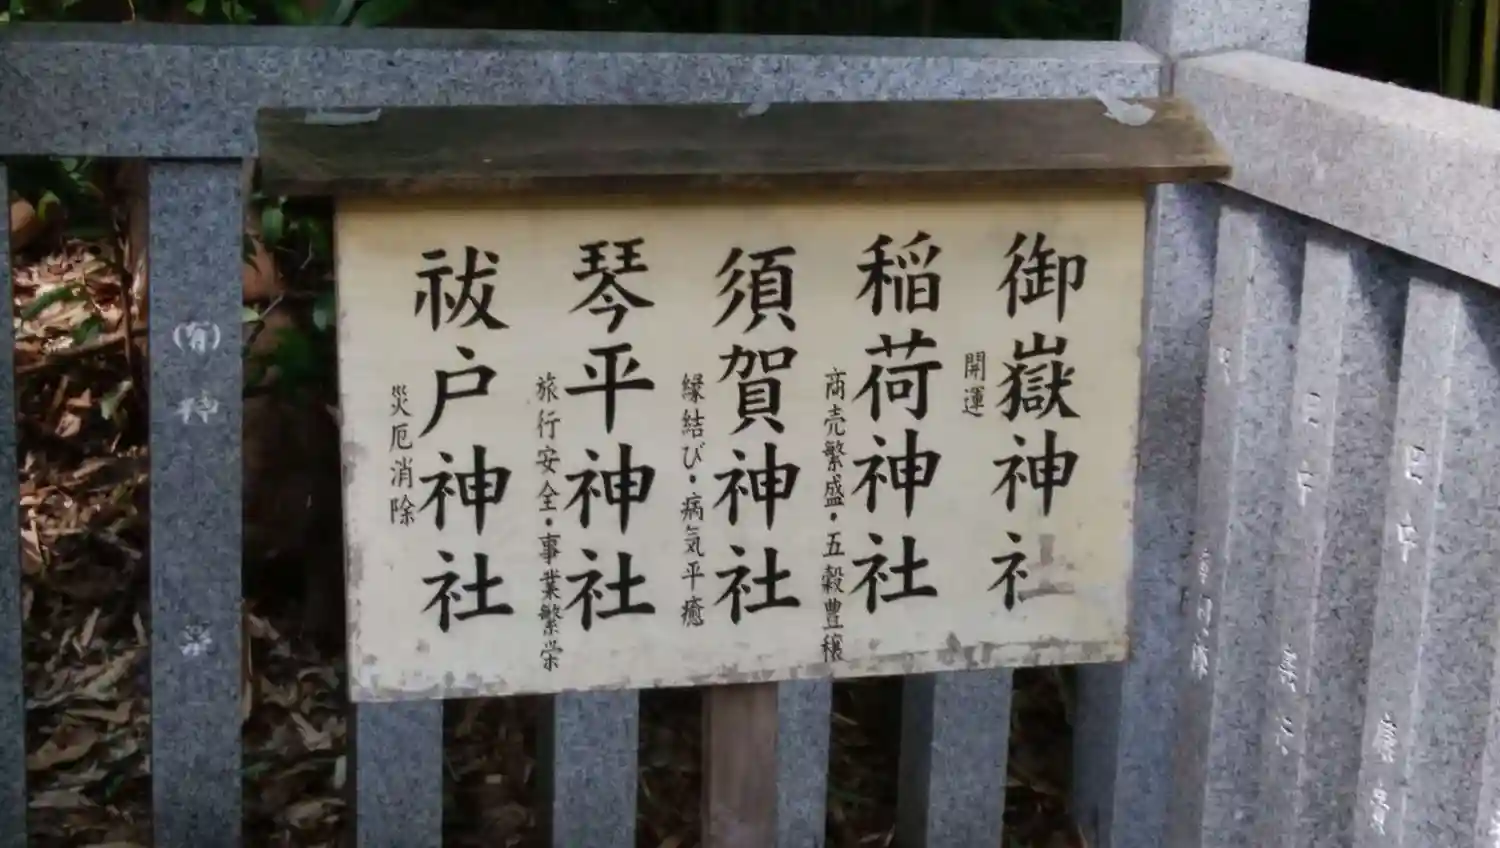 御嶽神社
開運
稲荷神社
商売繁盛・五穀豊穣
須賀神社
縁結び・病気平癒
琴平神社
旅行安全・事業繁栄
祓戸神社
災厄消除
(有)神